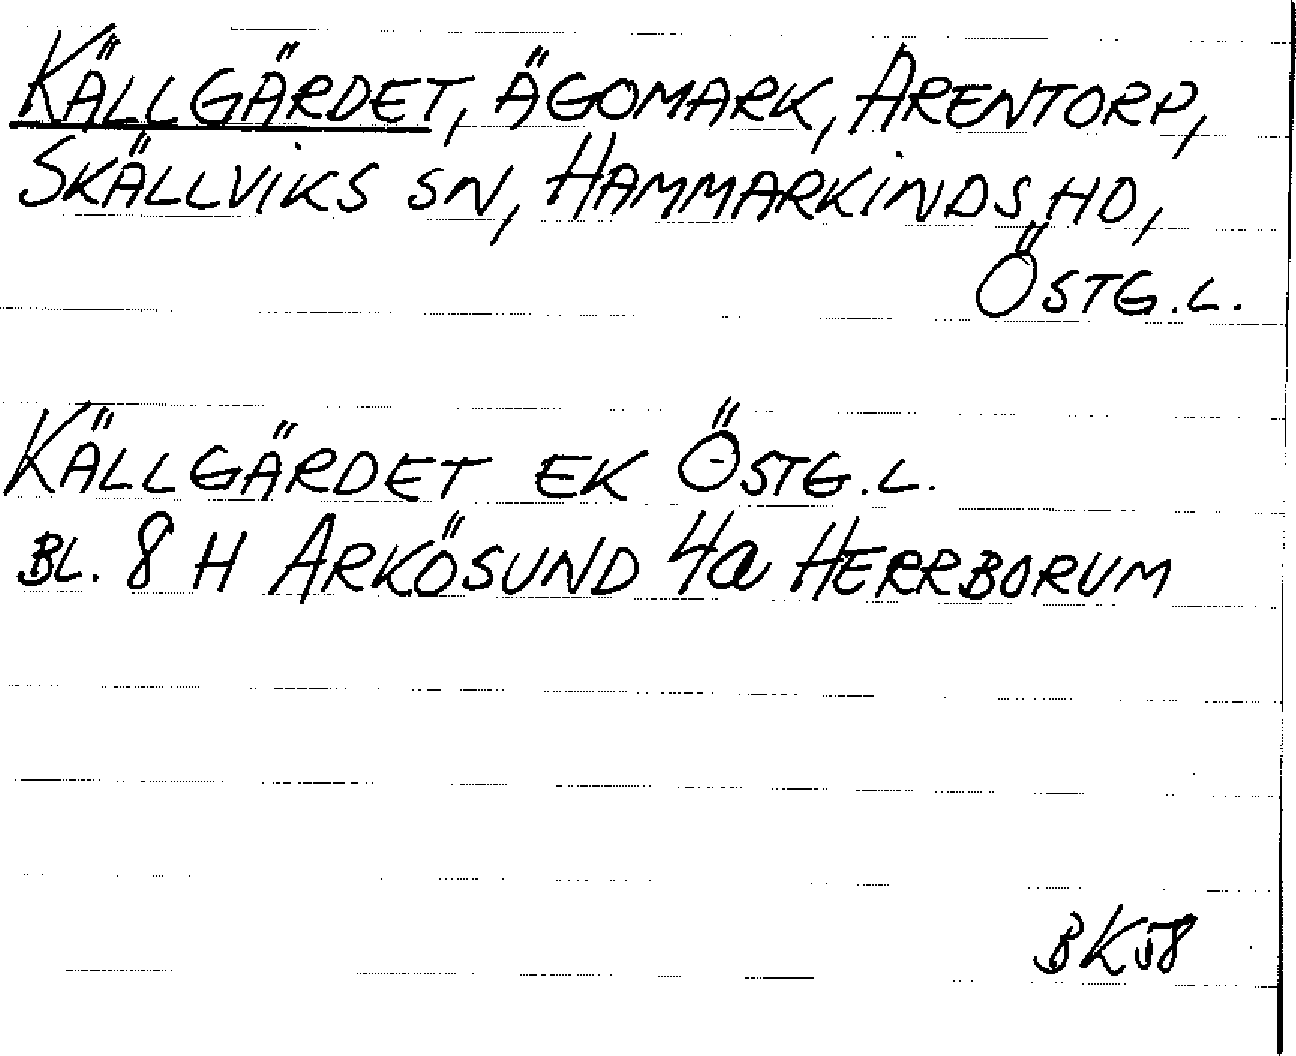 KÄLLGÄRDET, ÄGOMARK, ARENTORP,
SKÄLLVIKS SN, HAMMARKINDS HD,
ÖSTG.L.
KÄLLGÄRDET EK ÖSTG.L.
BL. 8 H ARKÖSUND 4a HERRBORUM
BK58